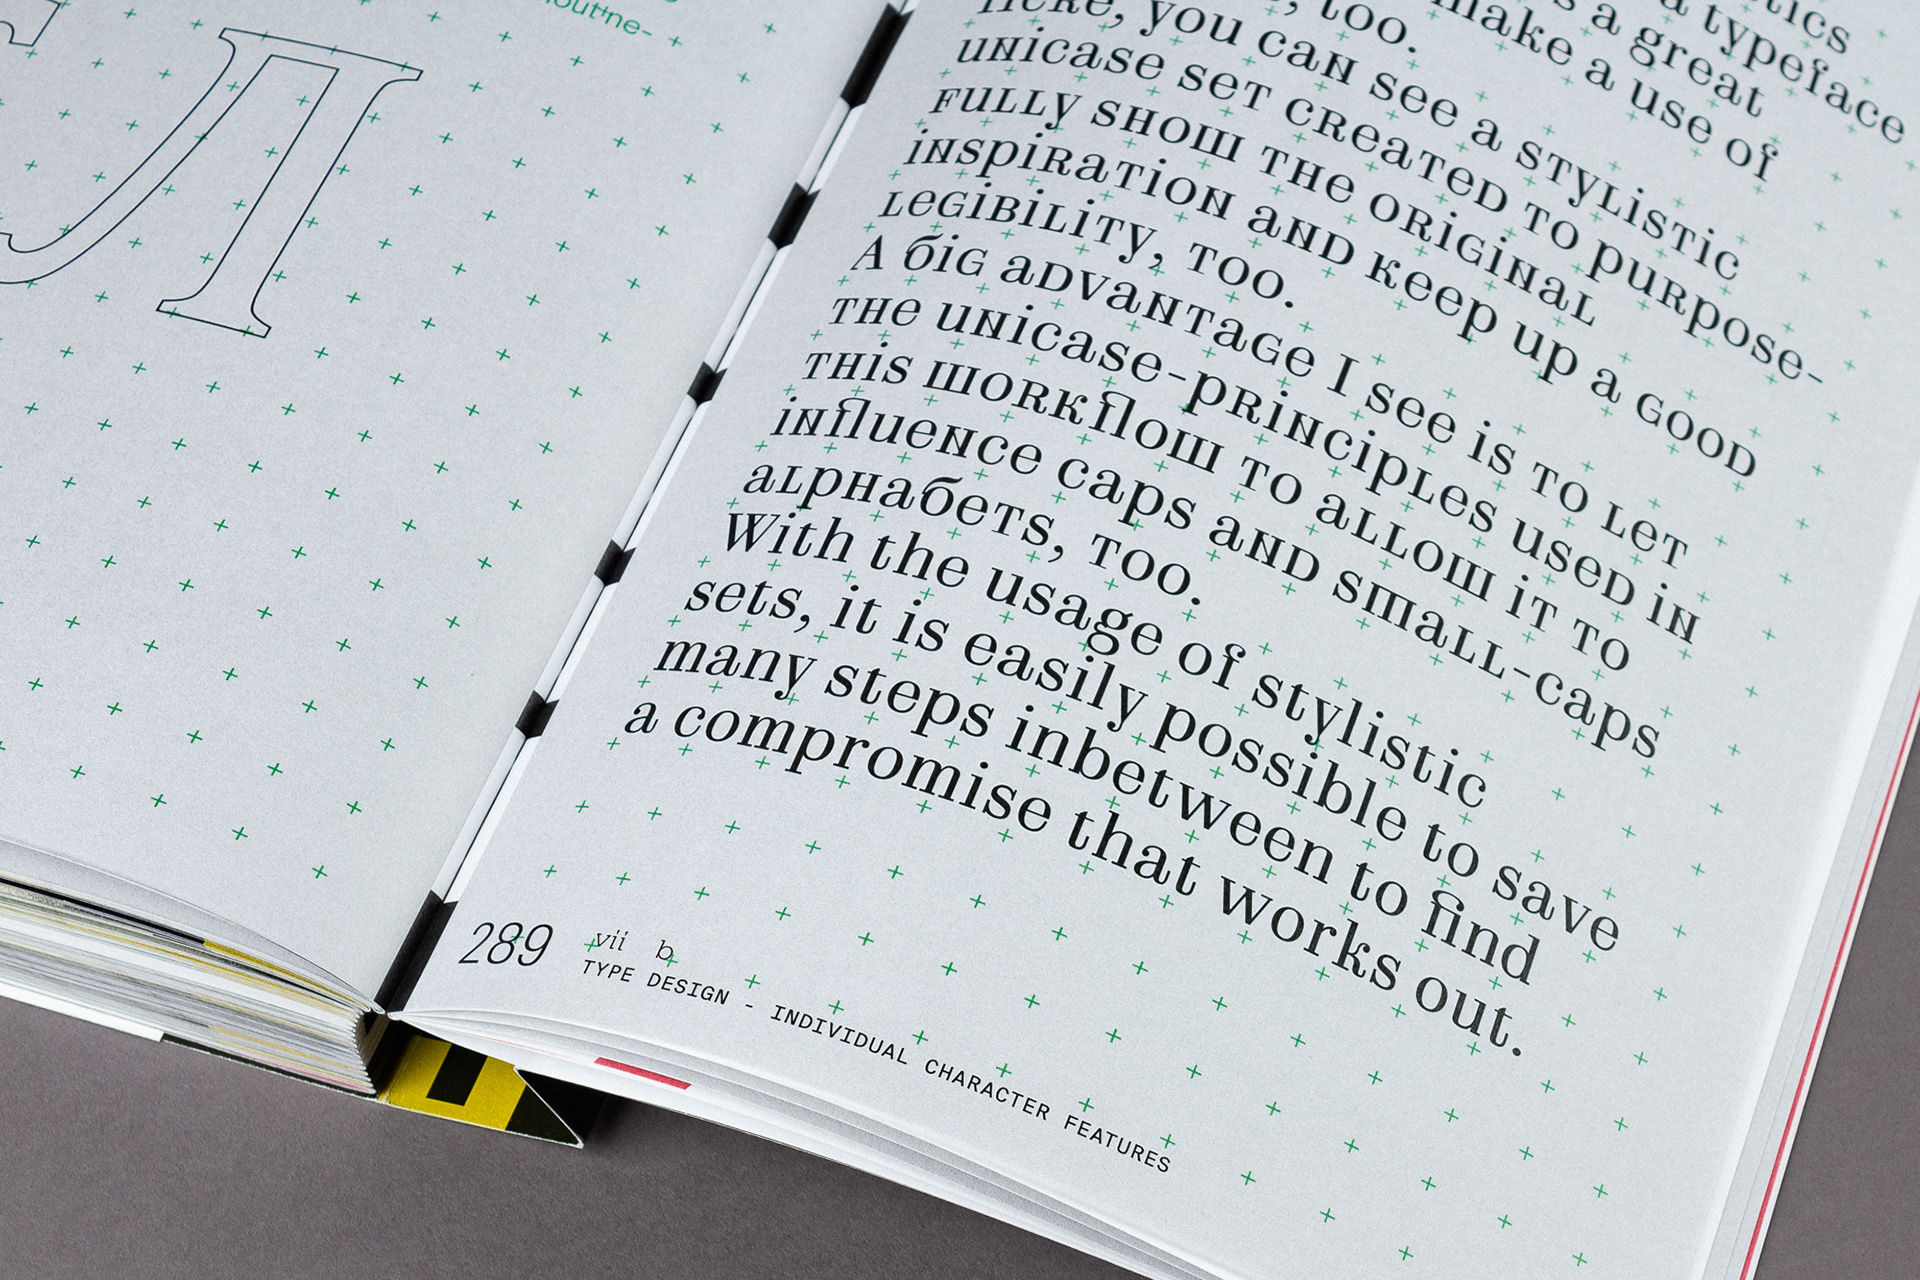 Л
a typeface
a great
make a use of
too.
Here, you can see a stylistic
unicase set created to purpose-
fully show the original
inspiration and keep up a good
legibility, too.
A big advantage I see is to let
the unicase-principles used in
this workflow to allow it to
influence caps and small-caps
alphabets, too.
With the usage of stylistic
sets, it is easily possible to save
many steps inbetween to find
a compromise that works out.
289 vii b
TYPE DESIGN - INDIVIDUAL CHARACTER FEATURES